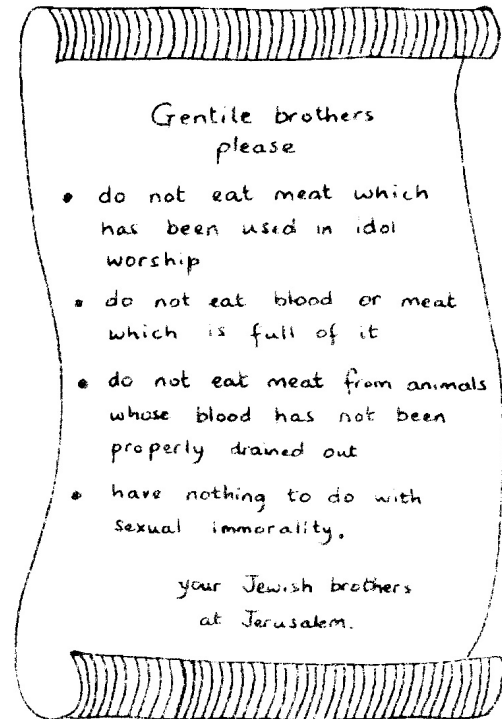 Gentile brothers
please
• do not eat meat which
has been used in idol
worship
• do not eat blood or meat
which is full of it
• do not eat meat from animals
whose blood has not been
properly drained out
• have nothing to do with
sexual immorality.
your Jewish brothers
at Jerusalem.